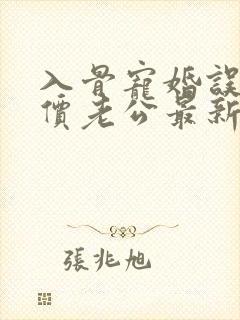 入骨寵婚誤
價老公最新
張兆旭